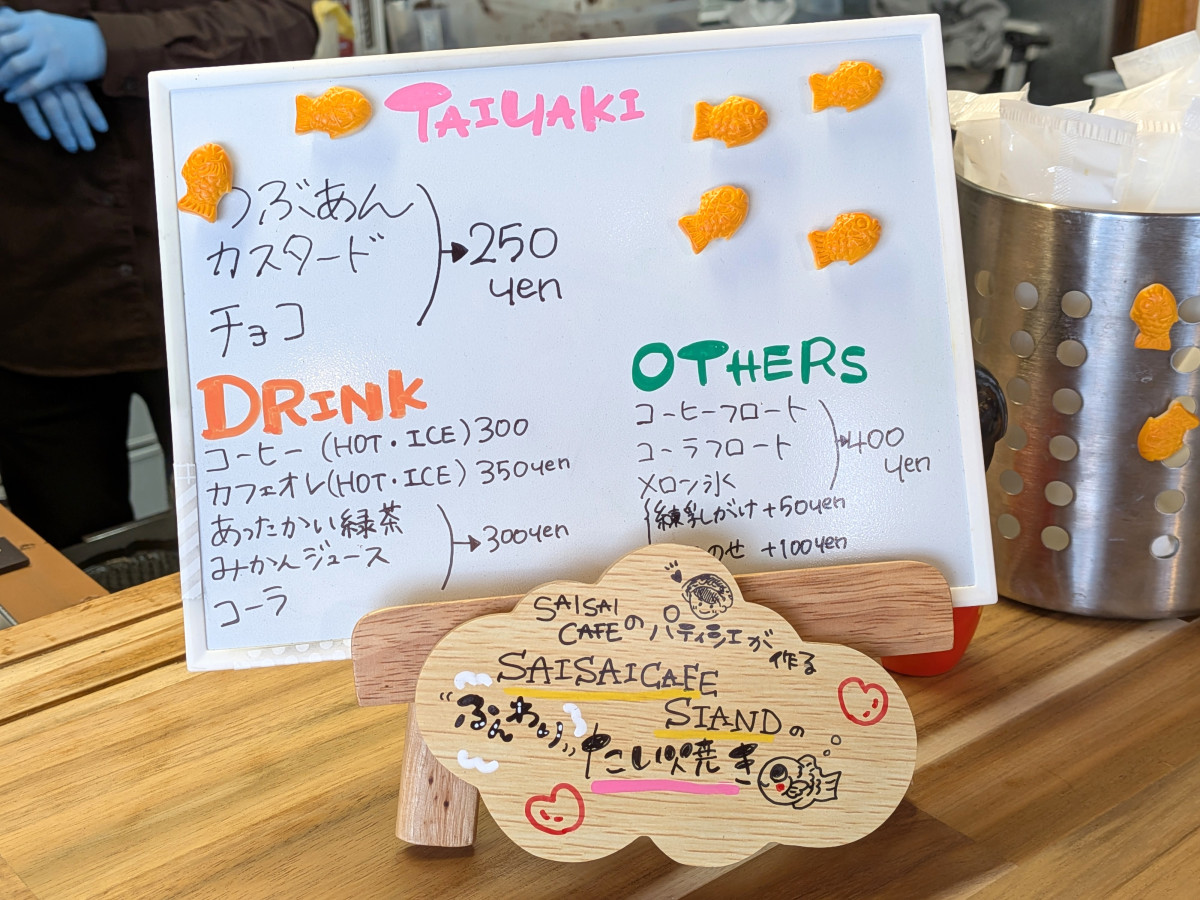 TAIYAKI
つぶあん
カスタード
チョコ
250
yen
DRINK
コーヒー (HOT・ICE) 300
カフェオレ(HOT・ICE) 350yen
あったかい緑茶
みかんジュース
コーラ
300yen
OTHERS
コーヒーフロート
コーラフロート
メロン氷
400
yen
練乳がけ +50yen
のせ +100yen
SAISAI
CAFEのパティシエが
作る
SAISAICAFE
STANDの
"ふんわり"たい焼き